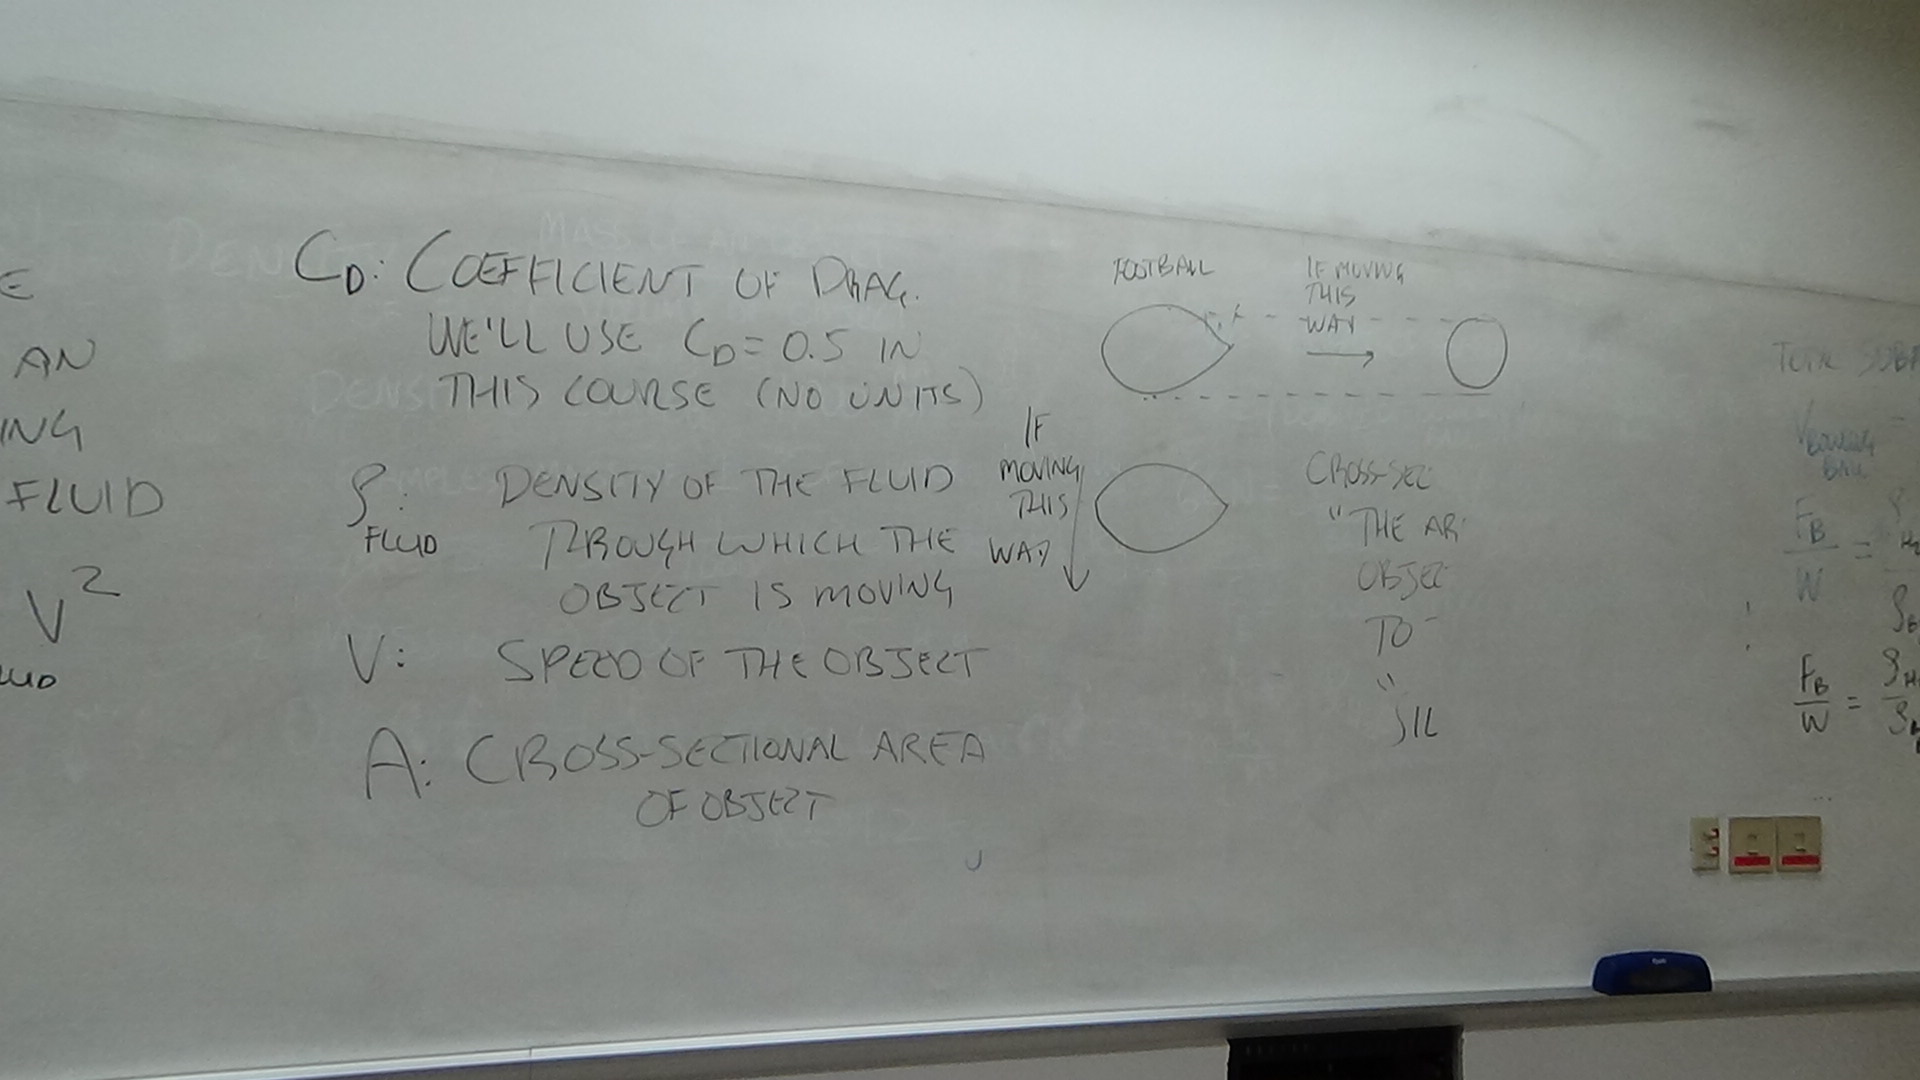 E
AN
ING
FLUID
V²
C_D: COEFFICIENT OF DRAG.
WE'LL USE C_D = 0.5 IN
THIS COURSE (NO UNITS)
ρ_FLUID: DENSITY OF THE FLUID
THROUGH WHICH THE
OBJECT IS MOVING
V: SPEED OF THE OBJECT
A: CROSS-SECTIONAL AREA
OF OBJECT
FOOTBALL
IF MOVING
THIS
WAY
IF
MOVING
THIS
WAY
CROSS-SEC
"THE AR
OBJEC
TO
"SIL
V BOWLING
BALL
F_B
W =
F_B
W =